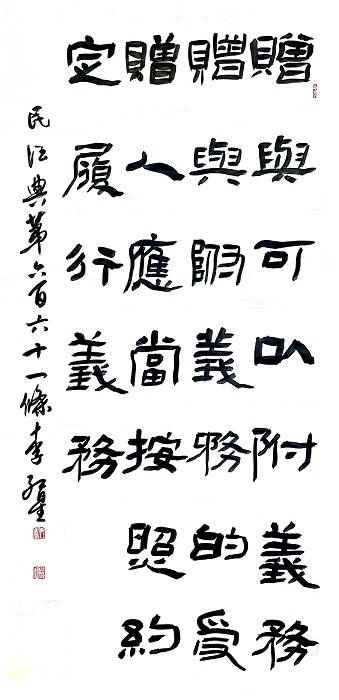 贈與可以附義務
贈與附義務的受
贈人應當按照約
定履行義務
民法典第六百六十一條 李